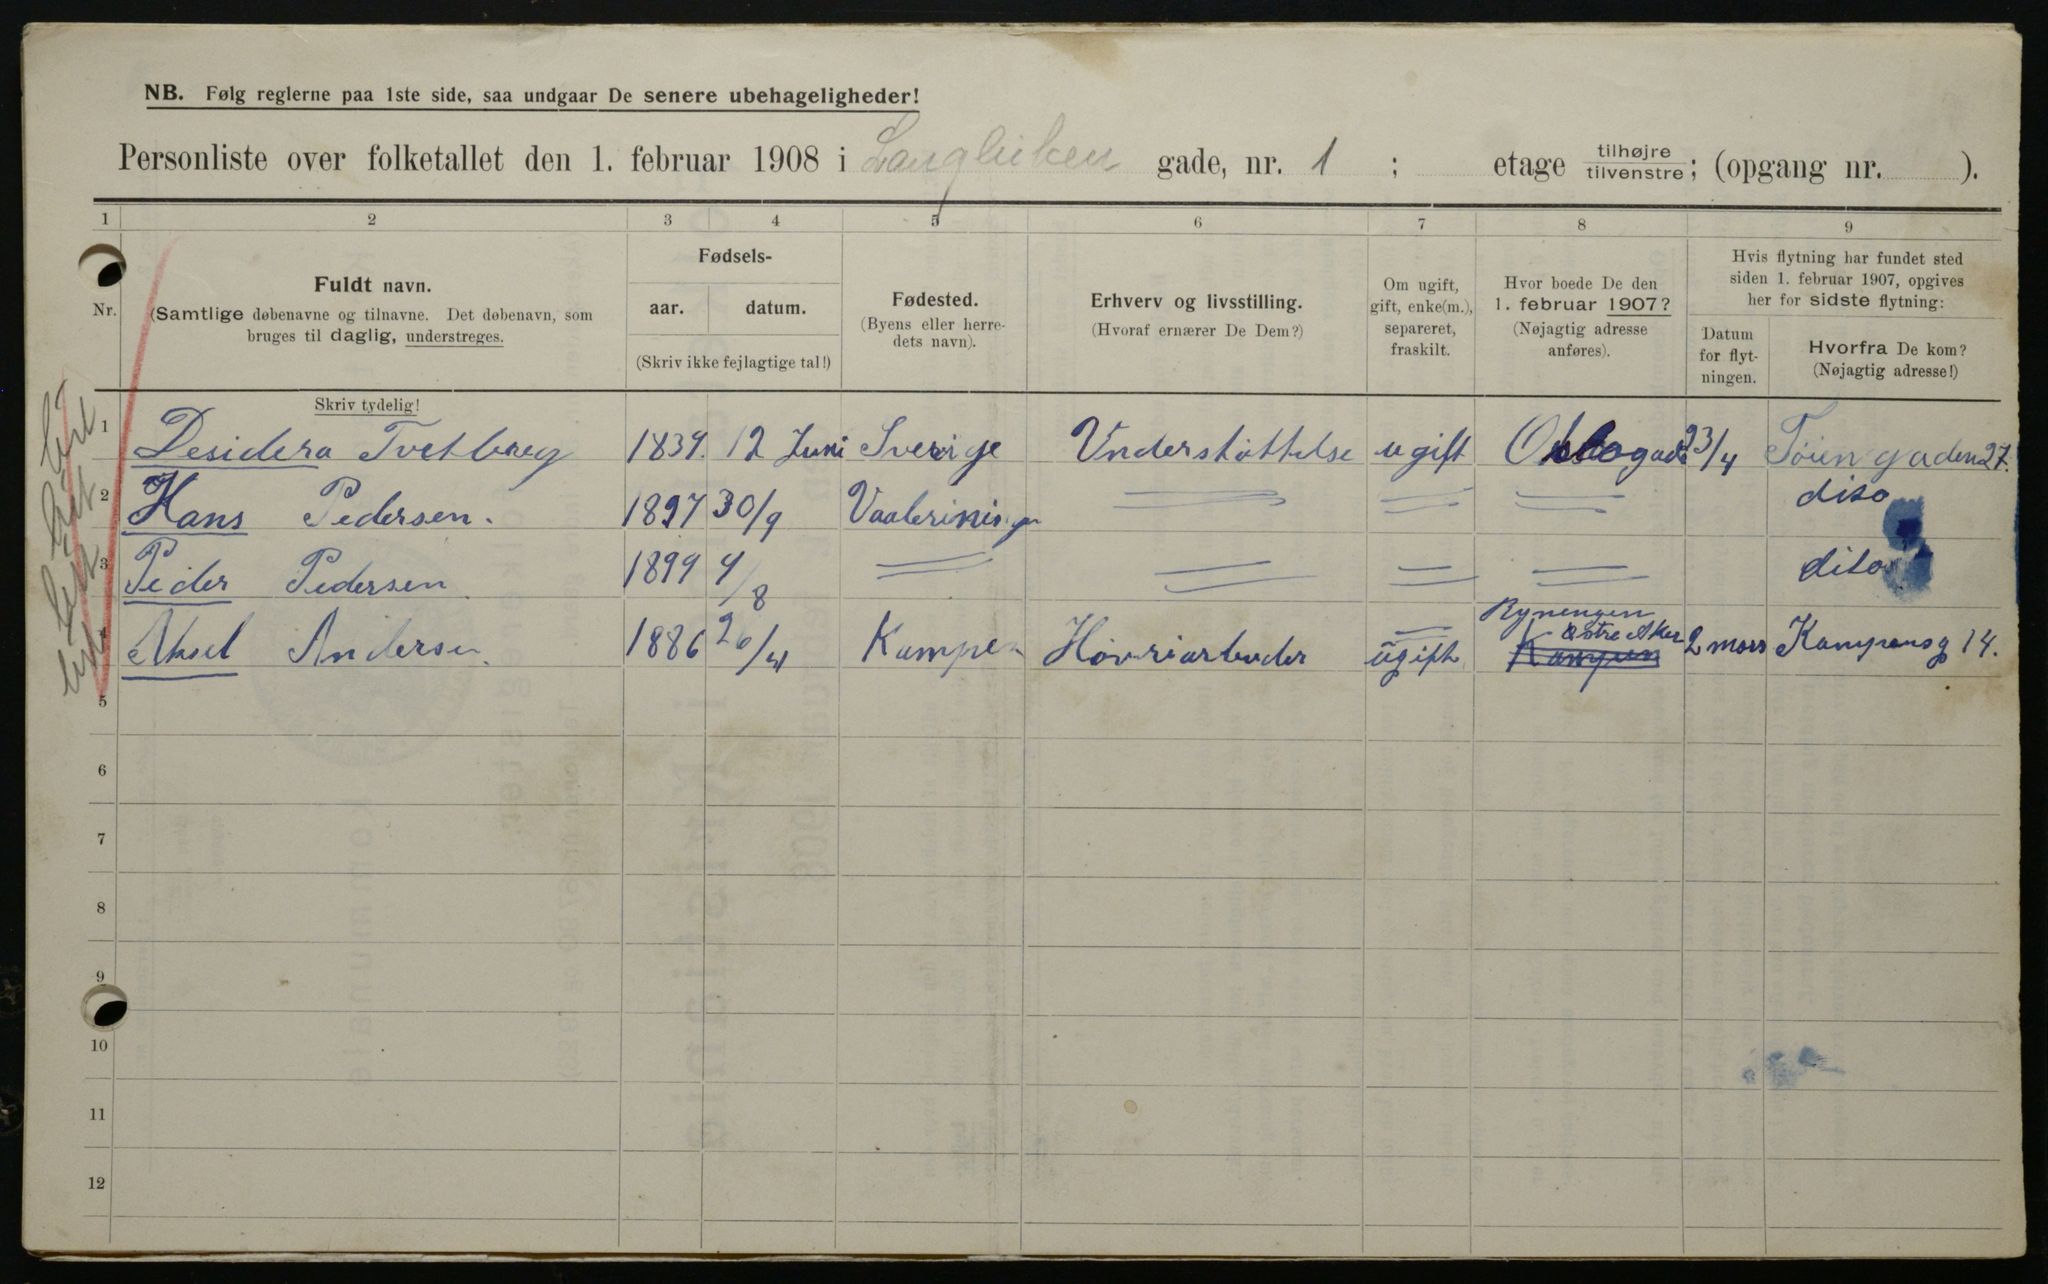 NB. Følg reglerne paa 1ste side, saa undgaar De senere ubehageligheder!
Personliste over folketallet den 1. februar 1908 i Langleiken gade, nr. 1 ; etage tilhøjre tilvenstre; (opgang nr. ).
1 2 3 4 5 6 7 8 9
Nr.
Fuldt navn.
(Samtlige døbenavne og tilnavne. Det døbenavn, som
bruges til daglig, understreges.
Skriv tydelig!
Fødsels-
aar. datum.
(Skriv ikke fejlagtige tal!)
Fødested.
(Byens eller herre-
dets navn).
Erhverv og livsstilling.
(Hvoraf ernærer De Dem?)
Om ugift,
gift, enke(m.),
separeret,
fraskilt.
Hvor boede De den
1. februar 1907?
(Nøjagtig adresse
anføres).
Hvis flytning har fundet sted
siden 1. februar 1907, opgives
her for sidste flytning:
Datum
for flyt-
ningen.
Hvorfra De kom?
(Nøjagtig adresse!)
1 Desidera Tvetbreg 1839. 12 Juni Sverige Understøttelse ugift Oslogade 23/4 Töiengaden 27.
2 Hans Pedersen. 1897 30/9 Vaaleringen diso
3 Peder Pedersen. 1899 4/8 diso
Rynengen
4 Aksel Andersen. 1886 26/4 Kampen ugift Østre Aker Kampen 2 mars Kampensg 14.
5
6
7
8
9
10
11
12